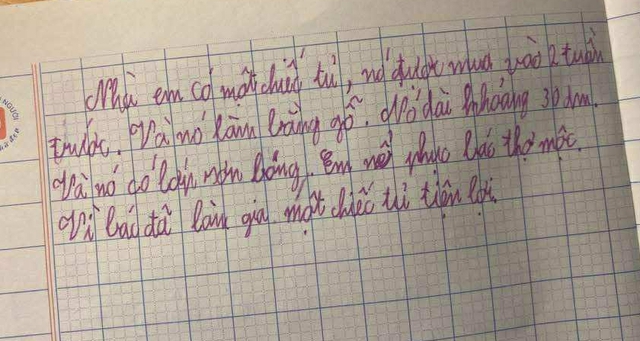 Nhà em có một chiếc tủ, nó được mua vào 2 tuần
trước. Và nó làm bằng gỗ. Nó dài khoảng 30 dm.
Và nó có lớp sơn bóng. Em phục bác thợ mộc.
Vì bác đã làm gia một chiếc tủ tiện lợi.